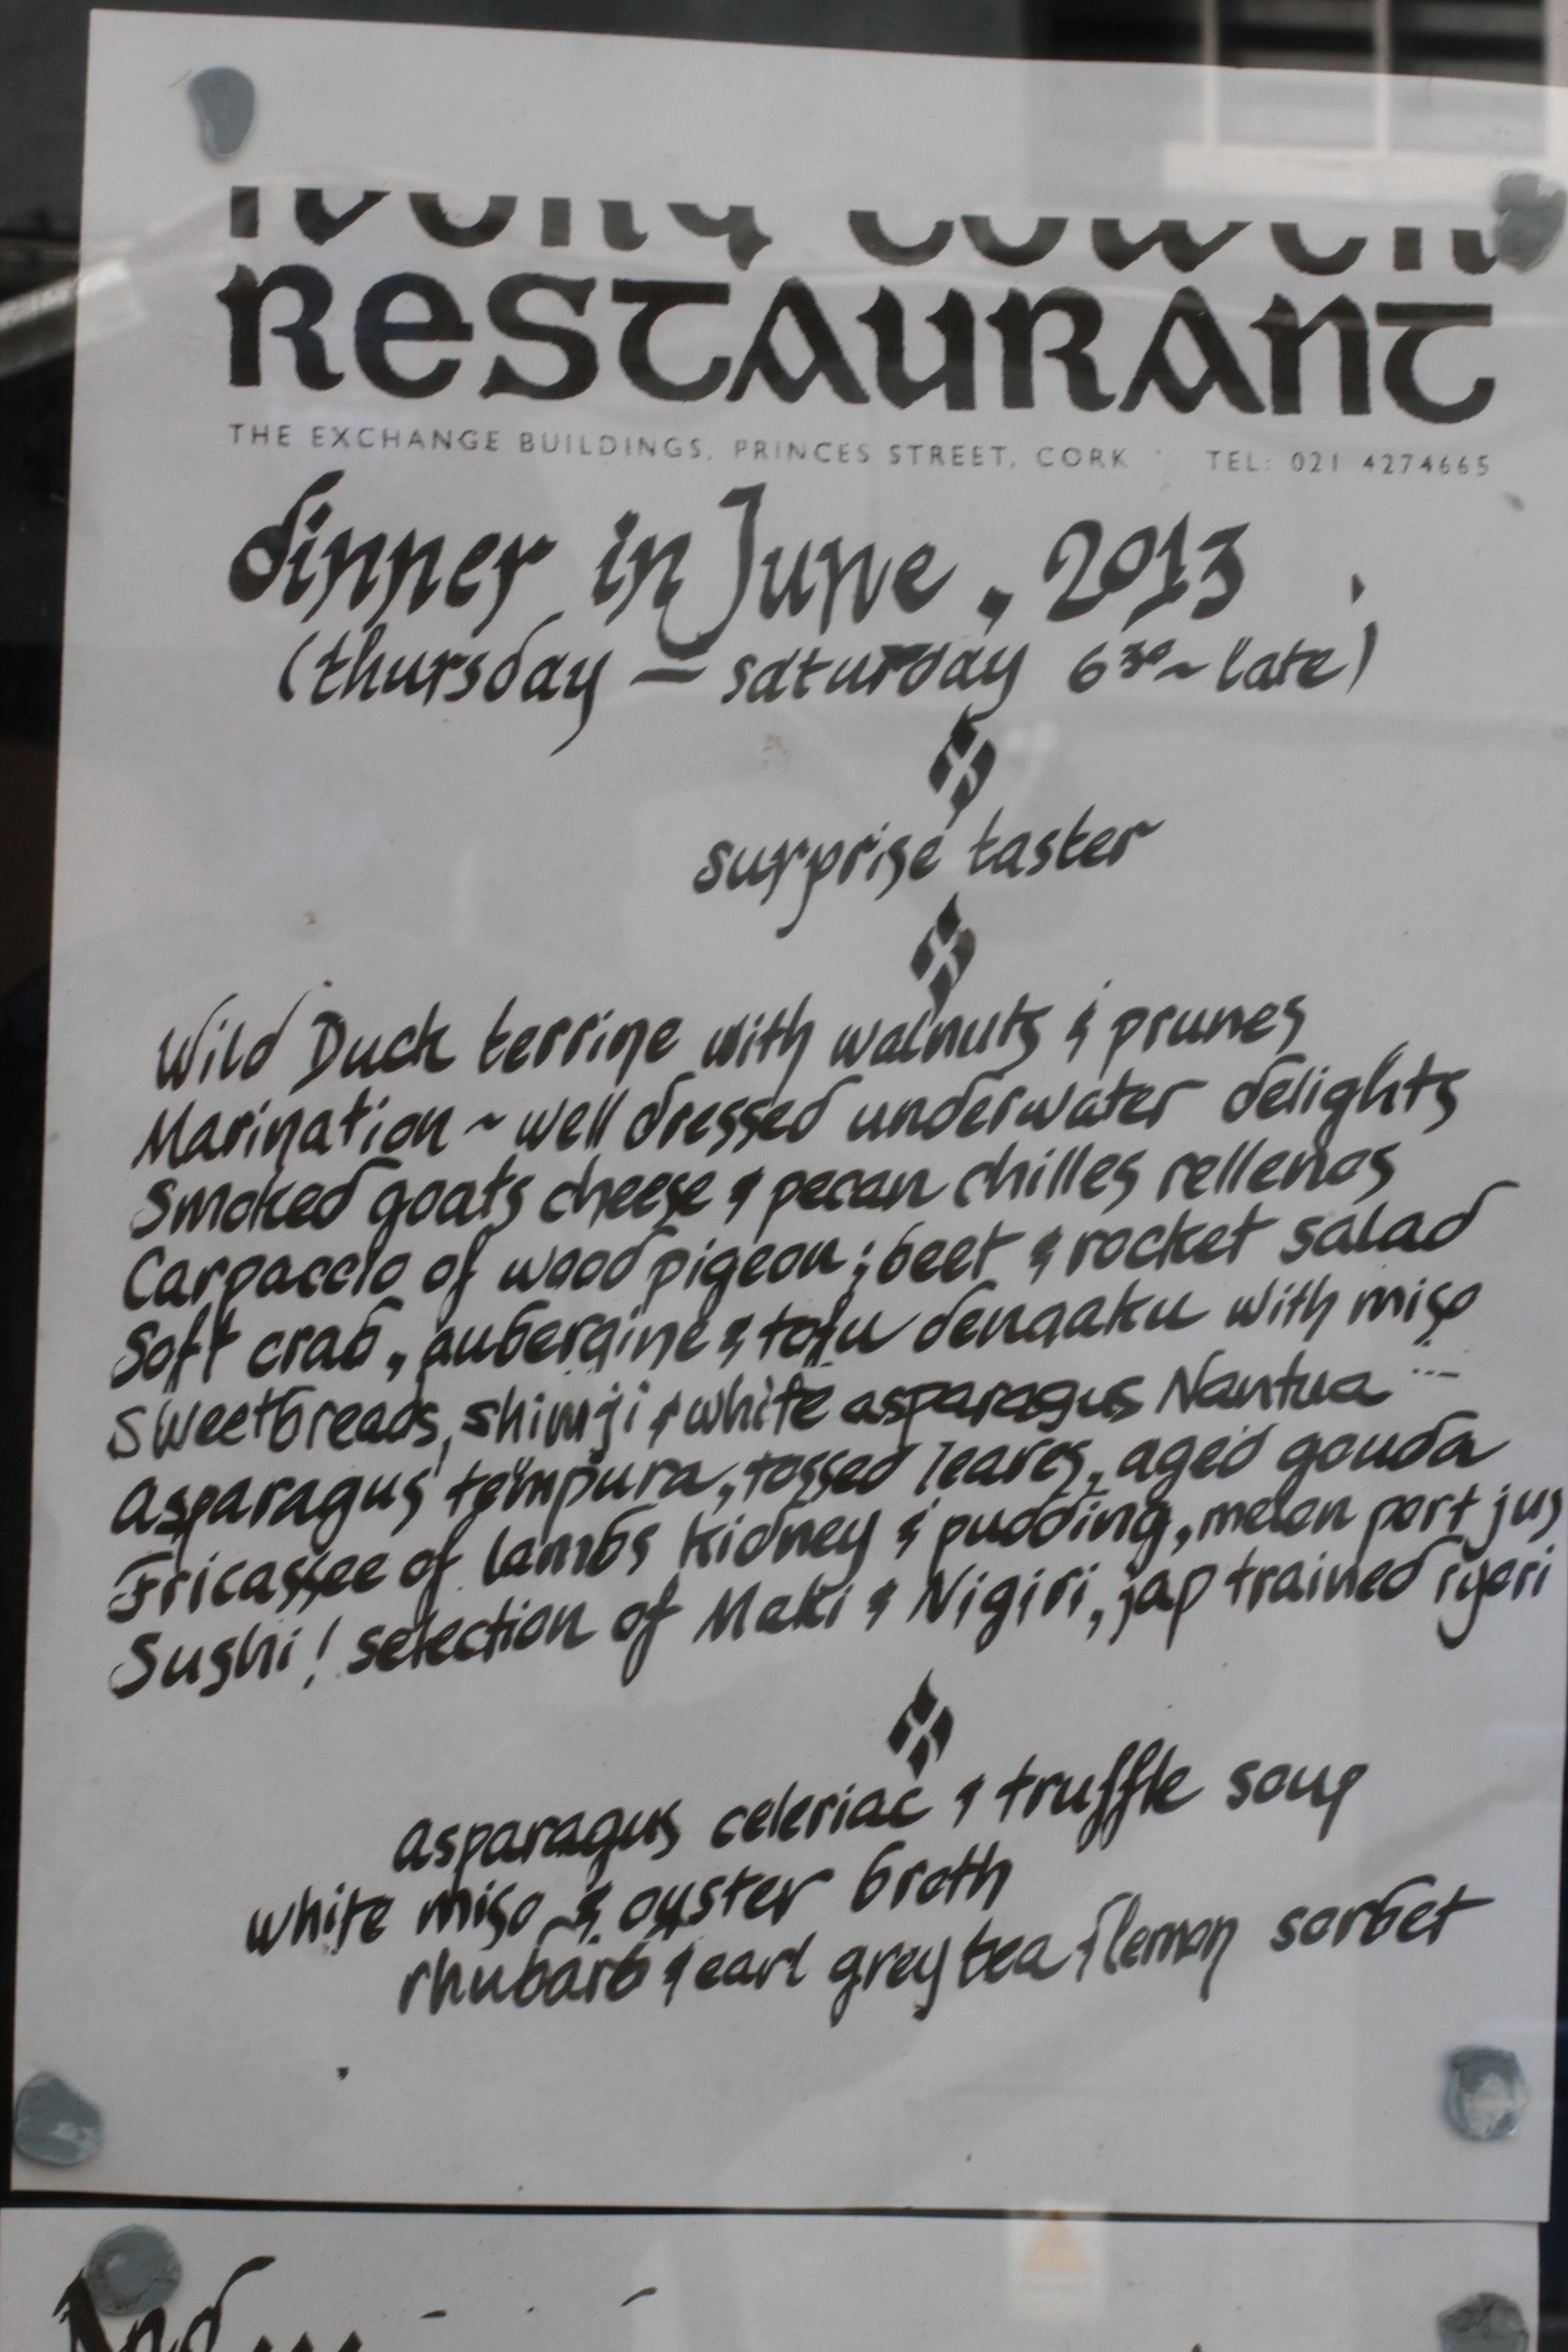 ivory tower
RESTAURANT
THE EXCHANGE BUILDINGS, PRINCES STREET, CORK TEL: 021 4274665
dinner in June, 2013
(thursday – saturday 6³⁰~late)
surprise taster
Wild Duck terrine with walnuts & prunes
Marination ~ well dressed underwater delights
Smoked goats cheese & pecan chilles rellenos
Carpaccio of wood pigeon; beet & rocket salad
Soft crab, aubergine & tofu dengaku with miso
Sweetbreads, shimji & white asparagus Nantua
Asparagus tempura, tossed leaves, aged gouda
Fricassee of lambs kidney & pudding, melon port jus
Sushi! selection of Maki & Nigiri, jap trained ryori
asparagus celeriac & truffle soup
white miso & oyster broth
rhubarb & earl grey tea & lemon sorbet